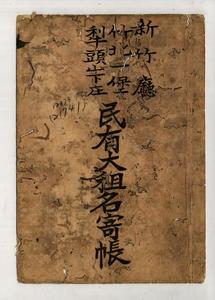 新竹廳
竹北二堡
犁頭山下庄
民有大租名寄帳